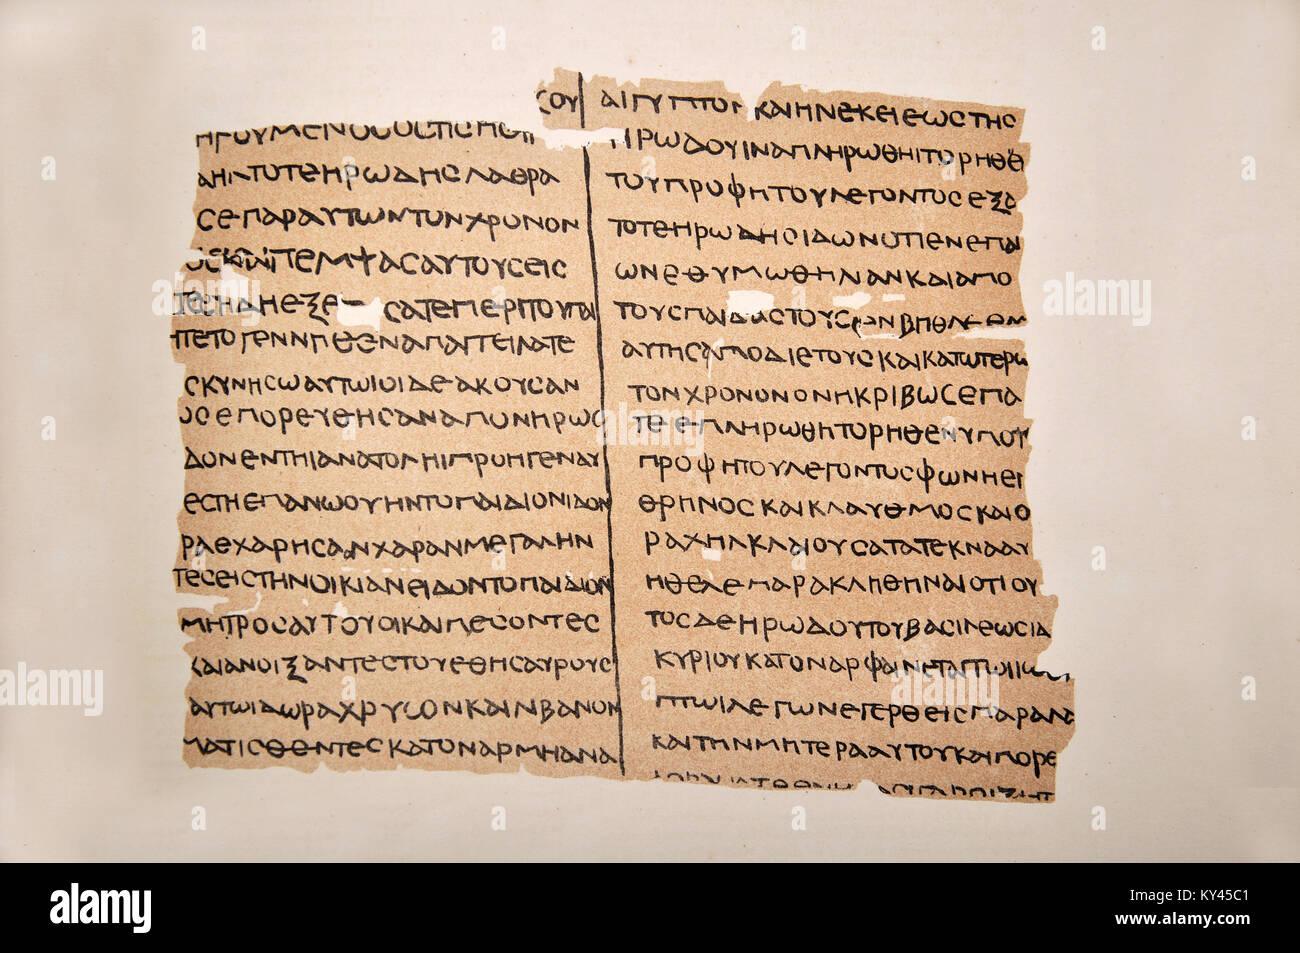 ϹΟΥ
ΗΓΟΥΜΕΝΟϹΟϹΤΙϹΠΟΙ
ΑΗΛΤΟΤΕΗΡΩΔΗϹΛΑΘΡΑ
ϹΕΠΑΡΑΥΤΩΝΤΟΝΧΡΟΝΟΝ
ΟϹΚΑΙΠΕΜΨΑϹΑΥΤΟΥϹΕΙϹ
ΤΕϹΗΔΗΕΞΕ ϹΑΤΕΠΕΡΙΤΟΥΠΑΙ
ΠΕΤΟΓΕΝΝΗΘΕΝΑΠΑΓΓΕΙΛΑΤΕ
ϹΚΥΝΗϹΩΑΥΤΩΙΟΙΔΕΑΚΟΥϹΑΝ
ΟϹΕΠΟΡΕΥΘΗϹΑΝΑΠΟΝΗΡΩϹ
ΔΟΝΕΝΤΗΙΑΝΑΤΟΛΗΙΠΡΟΗΓΕΝΑΥ
ΕϹΤΗΕΠΑΝΩΟΥΗΝΤΟΠΑΙΔΙΟΝΙΔΟΝ
ΡΑΕΧΑΡΗϹΑΝΧΑΡΑΝΜΕΓΑΛΗΝ
ΤΕϹΕΙϹΤΗΝΟΙΚΙΑΝΕΙΔΟΝΤΟΠΑΙΔΙΟΝ
ΜΗΤΡΟϹΑΥΤΟΥΟΙΚΑΙΠΕϹΟΝΤΕϹ
ΚΑΙΑΝΟΙΞΑΝΤΕϹΤΟΥΕΘΗϹΑΥΡΟΥϹ
ΑΥΤΩΙΔΩΡΑΧΡΥϹΟΝΚΑΙΛΙΒΑΝΟΝ
ΜΑΤΙϹΘΕΝΤΕϹΚΑΤΟΝΑΡΜΗΑΝΑ
ΑΙΓΥΠΤΟΝ ΚΑΙΗΝΕΚΕΙΕΩϹΤΗϹ
ΗΡΩΔΟΥΙΝΑΠΛΗΡΩΘΗΙΤΟΡΗΘΕ
ΤΟΥΠΡΟΦΗΤΟΥΛΕΓΟΝΤΟϹΕΞΑ
ΤΟΤΕΗΡΩΔΗϹΙΔΩΝΟΤΙΕΝΕΠΑΙ
ΩΝΕΘΥΜΩΘΗΛΙΑΝΚΑΙΑΠΟ
ΤΟΥϹΠΑΙΔΑϹΤΟΥϹΕΝΒΗΘΛΕΕΜ
ΑΥΤΗϹΑΠΟΔΙΕΤΟΥϹΚΑΙΚΑΤΩΤΕΡΩ
ΤΟΝΧΡΟΝΟΝΟΝΗΚΡΙΒΩϹΕΠΑ
ΤΕΕΠΛΗΡΩΘΗΤΟΡΗΘΕΝΥΠΟΥ
ΠΡΟΦΗΤΟΥΛΕΓΟΝΤΟϹΦΩΝΗΕΓ
ΘΡΗΝΟϹΚΑΙΚΛΑΥΘΜΟϹΚΑΙΟ
ΡΑΧΗΛΚΛΑΙΟΥϹΑΤΑΤΕΚΝΑΑΥ
ΗΘΕΛΕΠΑΡΑΚΛΗΘΗΝΑΙΟΤΙΟΥ
ΤΟϹΔΕΗΡΩΔΟΥΤΟΥΒΑϹΙΛΕΩϹΙΔ
ΚΥΡΙΟΥΚΑΤΟΝΑΡΦΑΙΝΕΤΑΙΤΩΙΙΩϹ
ΠΤΩΙΛΕΓΩΝΕΓΕΡΘΕΙϹΠΑΡΑΛΑ
ΚΑΙΤΗΝΜΗΤΕΡΑΑΥΤΟΥΚΑΙΠΟΡΕ
alamy
Image ID: KY45C1
www.alamy.com